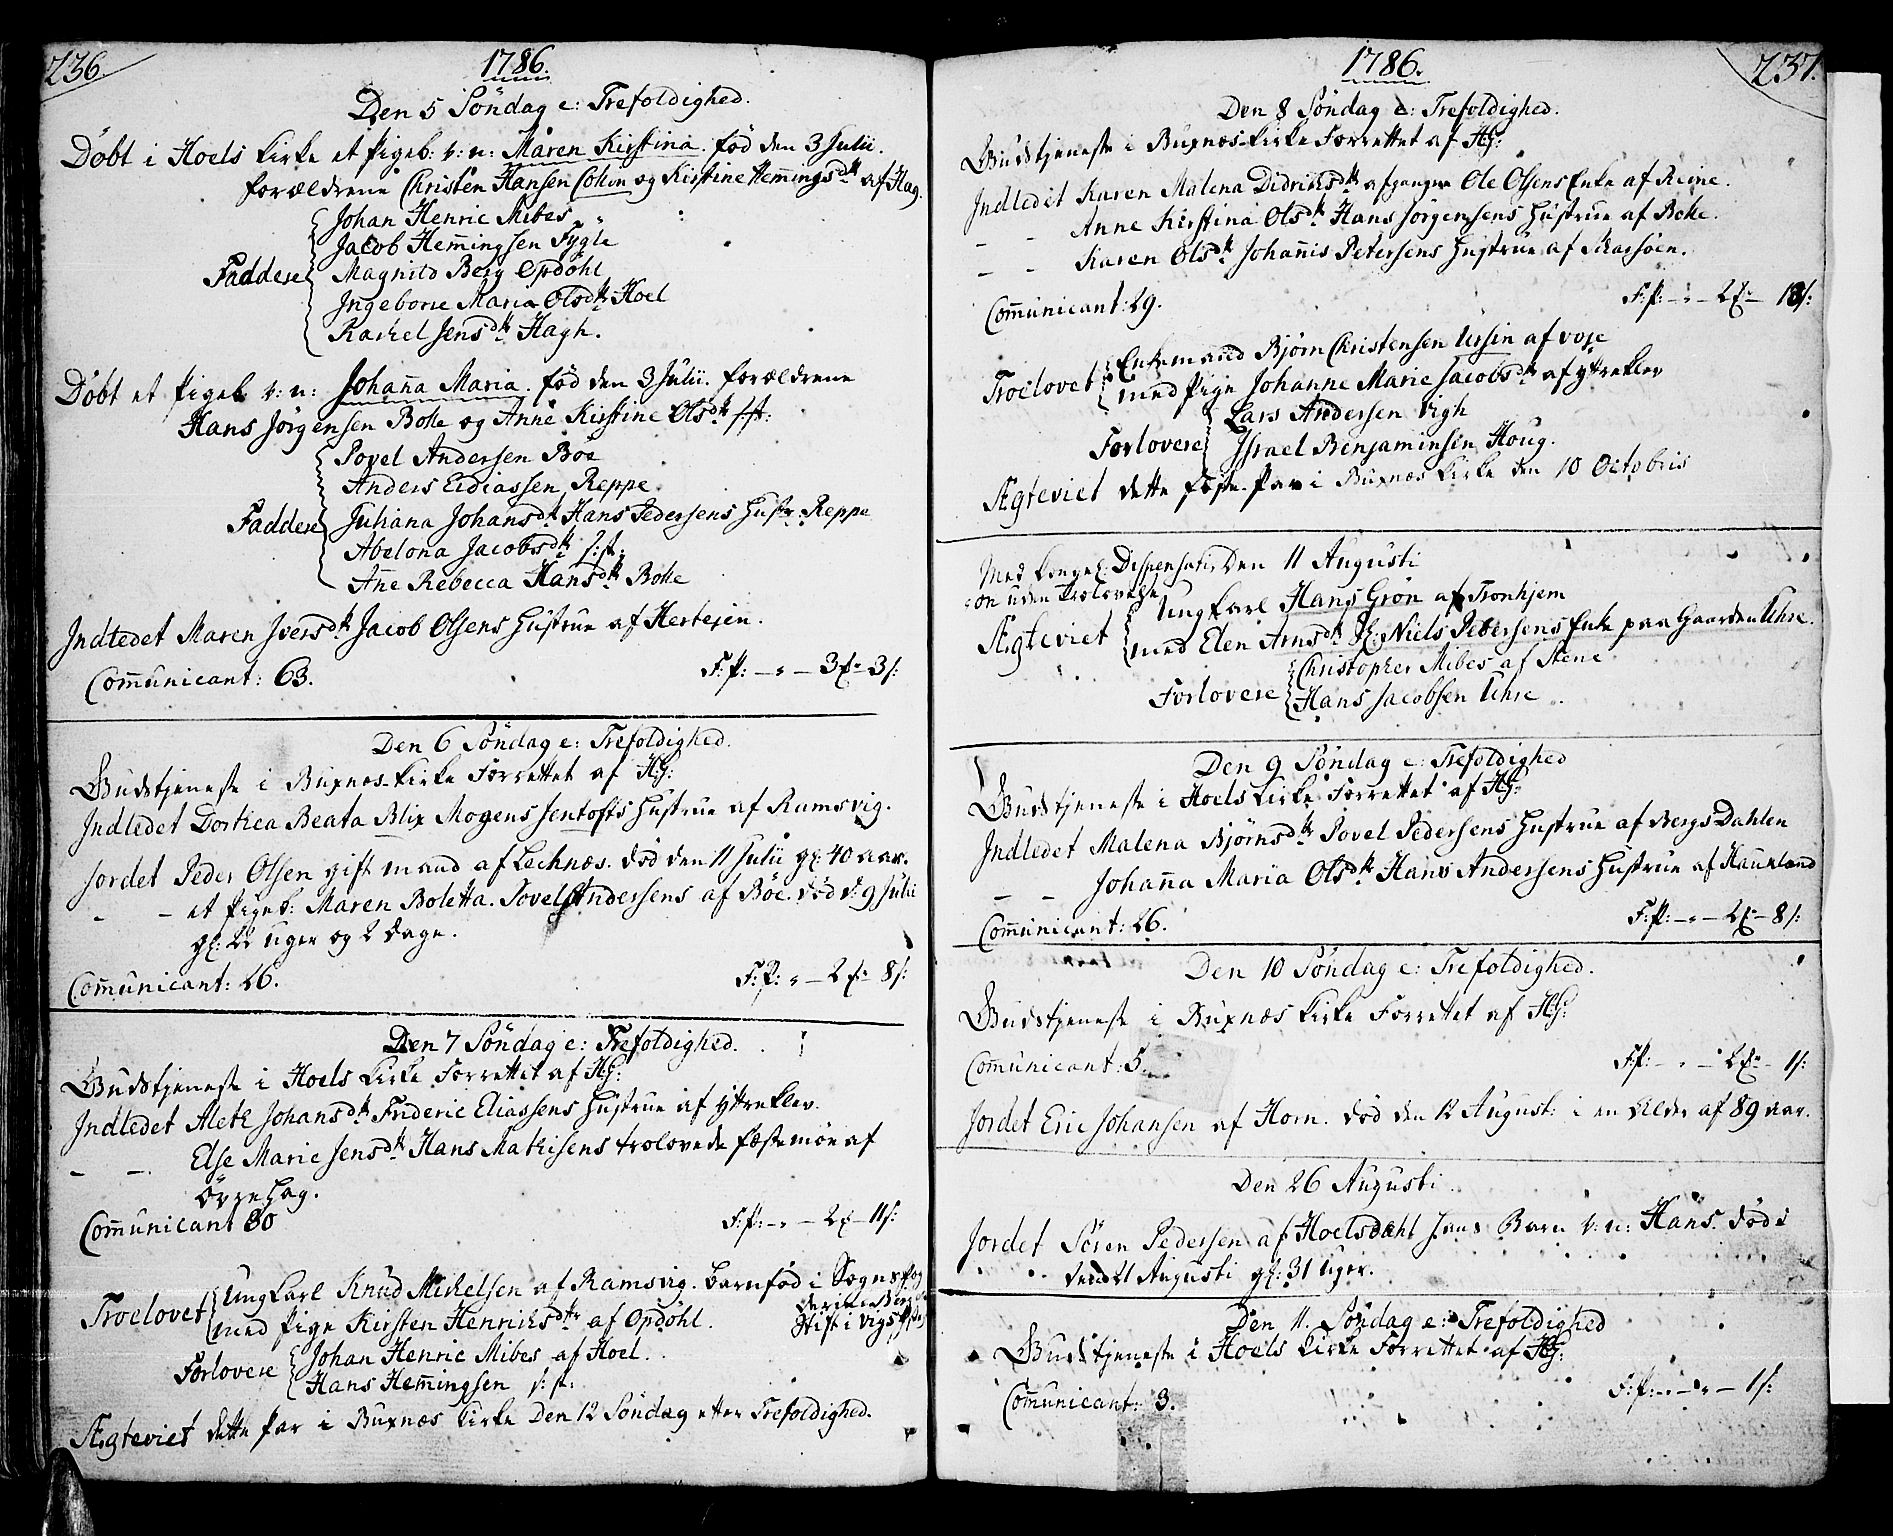 236.
1786.
Den 5 Söndag e: Trefoldighed.
Döbt i Hoels kirke et Pigeb: v: n: Maren Kirstina. föd den 3 Julii.
forældrene Christen Hansen Cohin og Kirstine Hemmingsdtr af Hag.
Johan Henric Mibes
Jacob Hemmingsen Fygle
Faddere Magnild Berg Opdöhl
Ingeborre Maria Olsdtr Hoel
Rachel Jensdtr Hagh.
Döbt et Pigeb v: n: Johanna Maria. föd den 3 Julii. forældrene
Hans Jörgensen Bolle og Anne Kirstine Olsdtr s:st:
Povel Andersen Böe
Anders Eidiassen Reppe
Faddere Juliana Johansdtr Hans Pedersens Hustr: Reppe
Abelona Jacobsdtr s:st:
Ane Rebecca Hansdtr Bolle
Indledet Maren Iversdtr Jacob Olsens Hustrue af Hertejen.
Communicant: 63.
F: P: – " – 3 – 3 s:
Den 6 Söndag e: Trefoldighed.
Gudstjeneste i Buxnes-kirke Forrettet af HG:
Indledet Dorthea Beata Blix Mogens Jentofts Hustrue af Ramsvig.
Jordet Peder Olsen gift mand af Lechnæs. död den 11 Julii gl: 40 aar.
– – et Pigeb: Maren Boletta. Povel Andersens af Böe. död d: 9 Julii
gl: 22 uger og 2 dage.
Communicant: 26.
F: P: " – 2 8 s:
Den 7 Söndag e: Trefoldighed.
Gudstjeneste i Hoels kirke Forrettet af HG:
Indledet Aleth Johansdtr Frideric Eliassens Hustrue af Yttreklev.
– – Else Marie Jensdtr Hans Mathisens trolovede fæstemöe af
Övre Hag.
Communicant 30
F: P: – " – 2 – 11 s:
Troelovet Ungkarl Knud Michelsen af Ramsvig. barnföd i Sogns fog
med Pige Kirsten Henrichsdtr af Opdöhl.
Stift i Vigs
Forlovere Johan Henric Mibes af Hoel.
Hans Hemmingsen s: st:
Ægteviet dette Par i Buxnæs kirke Den 12 Söndag efter Trefoldighed.
1786.
237.
Den 8 Söndag e: Trefoldighed.
Gudstjeneste i Buxnes-kirke Forrettet af HG:
Indledet Karen Malena Didrichsdtr afgangne Ole Olsens Enke af Reine.
– – Anne Kirstina Olsdtr Hans Jörgensens Hustrue af Bolle.
– – Karen Olsdtr Johannis Petersens Hustrue af Skarsöen.
Communicant: 29.
F: P: – " – 2 – 18 s:
Troelovet Enkemand Björn Christensen Ursin af voje
med Pige Johanne Marie Jacobsdtr af Yttreklev
Forlovere Lars Andersen Vigh
Israel Benjaminsen Houg.
Ægteviet dette Par i Buxnæs kirke den 10 Octobris
Med kongel: Dispensati- Den 11 Augusti
on uden Trolovelse
Ægteviet Ungkarl Hans Grön af Tronhjem
med Elen Arnsdtr Niels Petersens Enke paa Gaarden Uhre.
Forlovere Christopher Mibes af Stene
Hans Jacobsen Uhre
Den 9 Söndag e: Trefoldighed
Gudstjeneste i Hoels kirke Forrettet af HG:
Indledet Malena Björnsdtr Povel Pedersens Hustrue af Bergs Dahlen
– – Johanna Maria Olsdtr Hans Andersens Hustrue af Haukland
Communicant: 26.
F: P: – " – 2 – 8 s:
Den 10 Söndag e: Trefoldighed.
Gudstjeneste i Buxnæs kirke Forrettet af HG:
Communicant: 5.
F: P: – " – 2 – 1 s:
Jordet Eric Johansen af Horn. död den 12 August: i en Alder af 89 aar.
Den 26 Augusti
Jordet Sören Pedersen af Hoelsdahl hans Barn v: n: Hans. död
den 21 Augusti gl: 31 uger.
Den 11. Söndag e: Trefoldighed
Gudstjeneste i Hoels kirke Forrettet af HG:
Communicant: 3.
F: P: – " – 1 s: